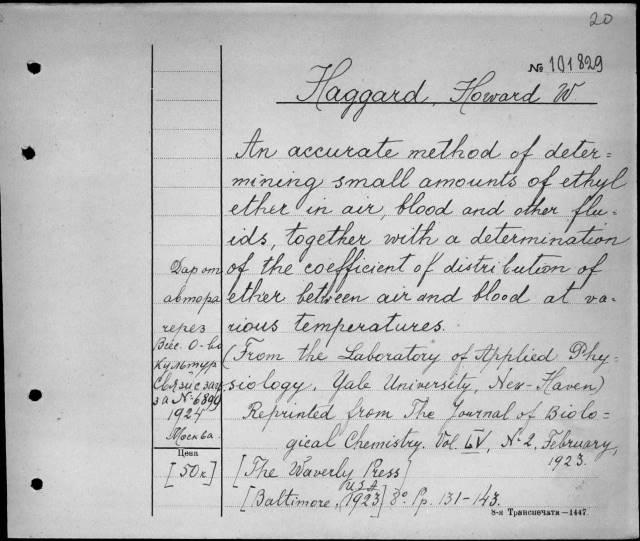 20
№ 101829
Haggard, Howard W.
An accurate method of deter=
mining small amounts of ethyl
ether in air, blood and other flu=
ids, together with a determination
of the coefficient of distribution of
ether between air and blood at va=
rious temperatures.
(From the Laboratory of Applied Phy=
siology, Yale University, New-Haven)
Reprinted from The Journal of Biolo=
gical Chemistry. Vol. LV, № 2, February,
1923.
[The Waverly Press]
U.S.A
[Baltimore, 1923] 8° Pp. 131-143.
Дар от
автора
через
Всес. О-во
Культур
Связи с загр.
за № 6899
1924
Москва
Цена
[50к.]
8-я Транспечати—1447